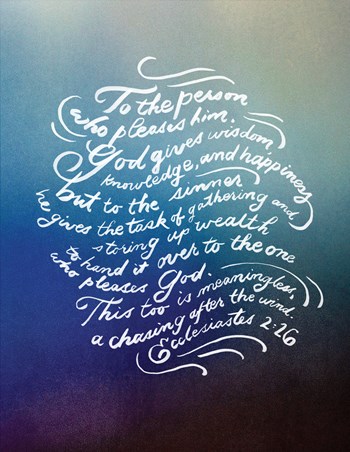 To the person
who pleases him,
God gives wisdom,
knowledge, and happiness
but to the sinner
he gives the task of gathering and
storing up wealth
to hand it over to the one
who pleases God.
This too is meaningless,
a chasing after the wind.
Ecclesiastes 2:26